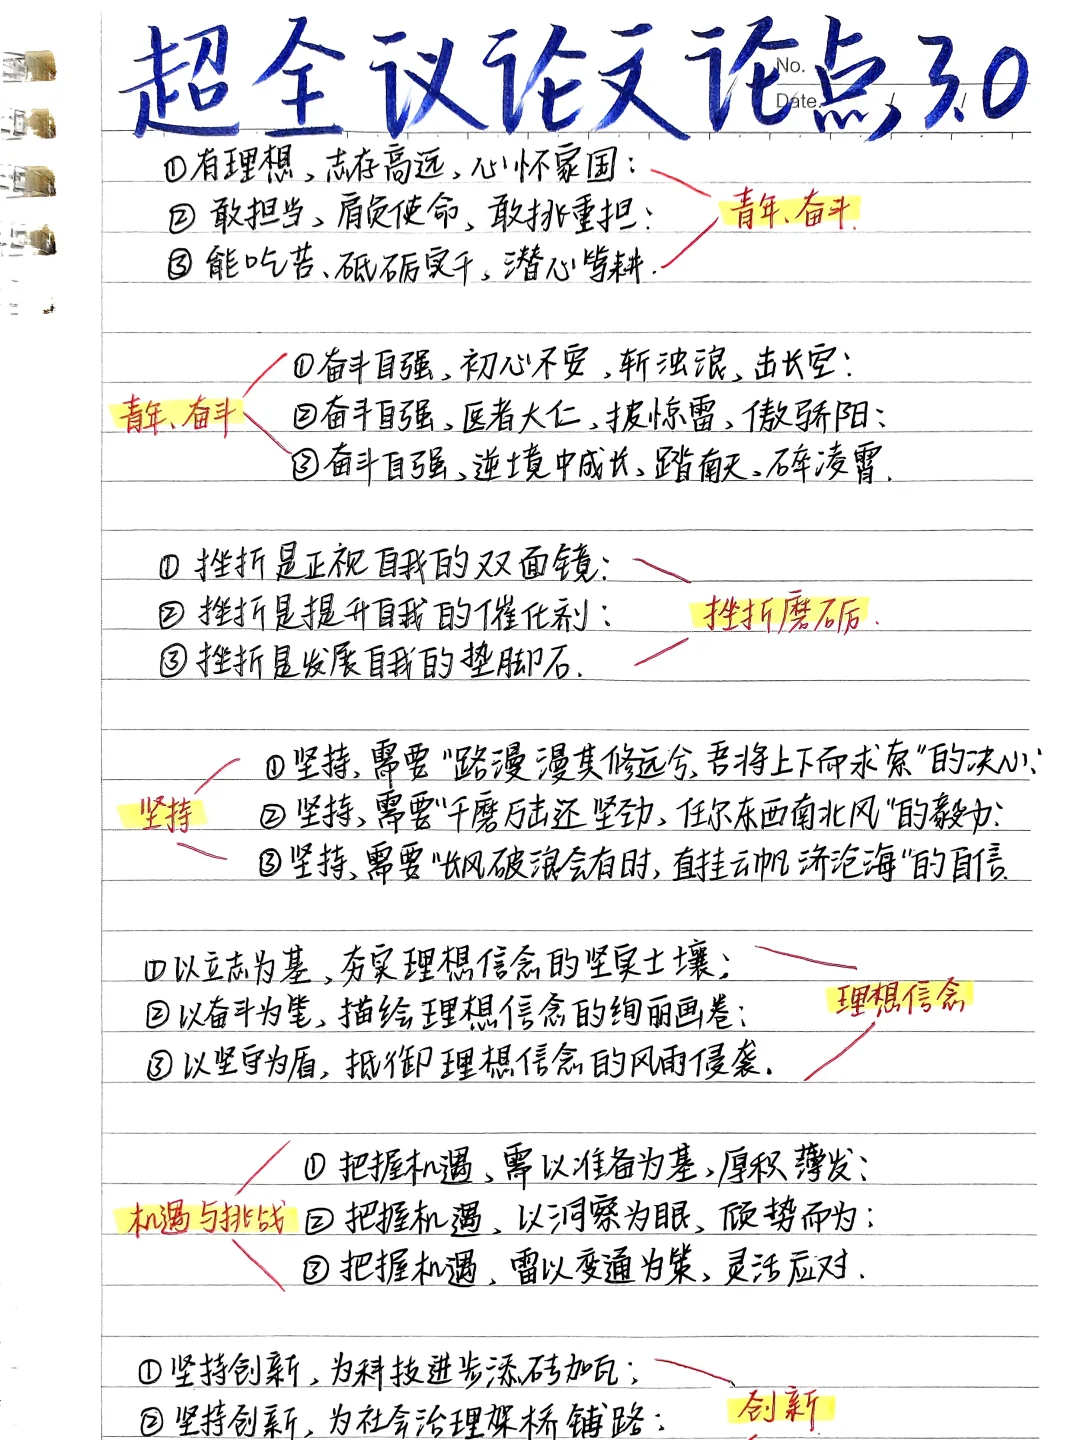 超全议论文论点3.0
No.
Date.
①有理想、志存高远、心怀家国；
②敢担当、肩负使命、敢挑重担；
青年、奋斗
③能吃苦、砥砺实干、潜心笃耕.
①奋斗自强、初心不安、斩浊浪、击长空；
青年、奋斗
②奋斗自强、医者大仁、披惊雷、傲骄阳；
③奋斗自强、逆境中成长、踏南天、碎凌霄.
①挫折是正视自我的双面镜；
②挫折是提升自我的催化剂；
挫折磨砺.
③挫折是发展自我的垫脚石.
①坚持,需要“路漫漫其修远兮,吾将上下而求索”的决心；
坚持
②坚持,需要“千磨万击还坚劲,任尔东西南北风”的毅力；
③坚持,需要“长风破浪会有时,直挂云帆济沧海”的自信.
①以立志为基,夯实理想信念的坚实土壤；
理想信念
②以奋斗为笔,描绘理想信念的绚丽画卷；
③以坚守为盾,抵御理想信念的风雨侵袭.
①把握机遇,需以准备为基,厚积薄发；
机遇与挑战
②把握机遇,以洞察为眼,倾势而为；
③把握机遇,需以变通为策,灵活应对.
①坚持创新,为科技进步添砖加瓦；
创新
②坚持创新,为社会治理架桥铺路；